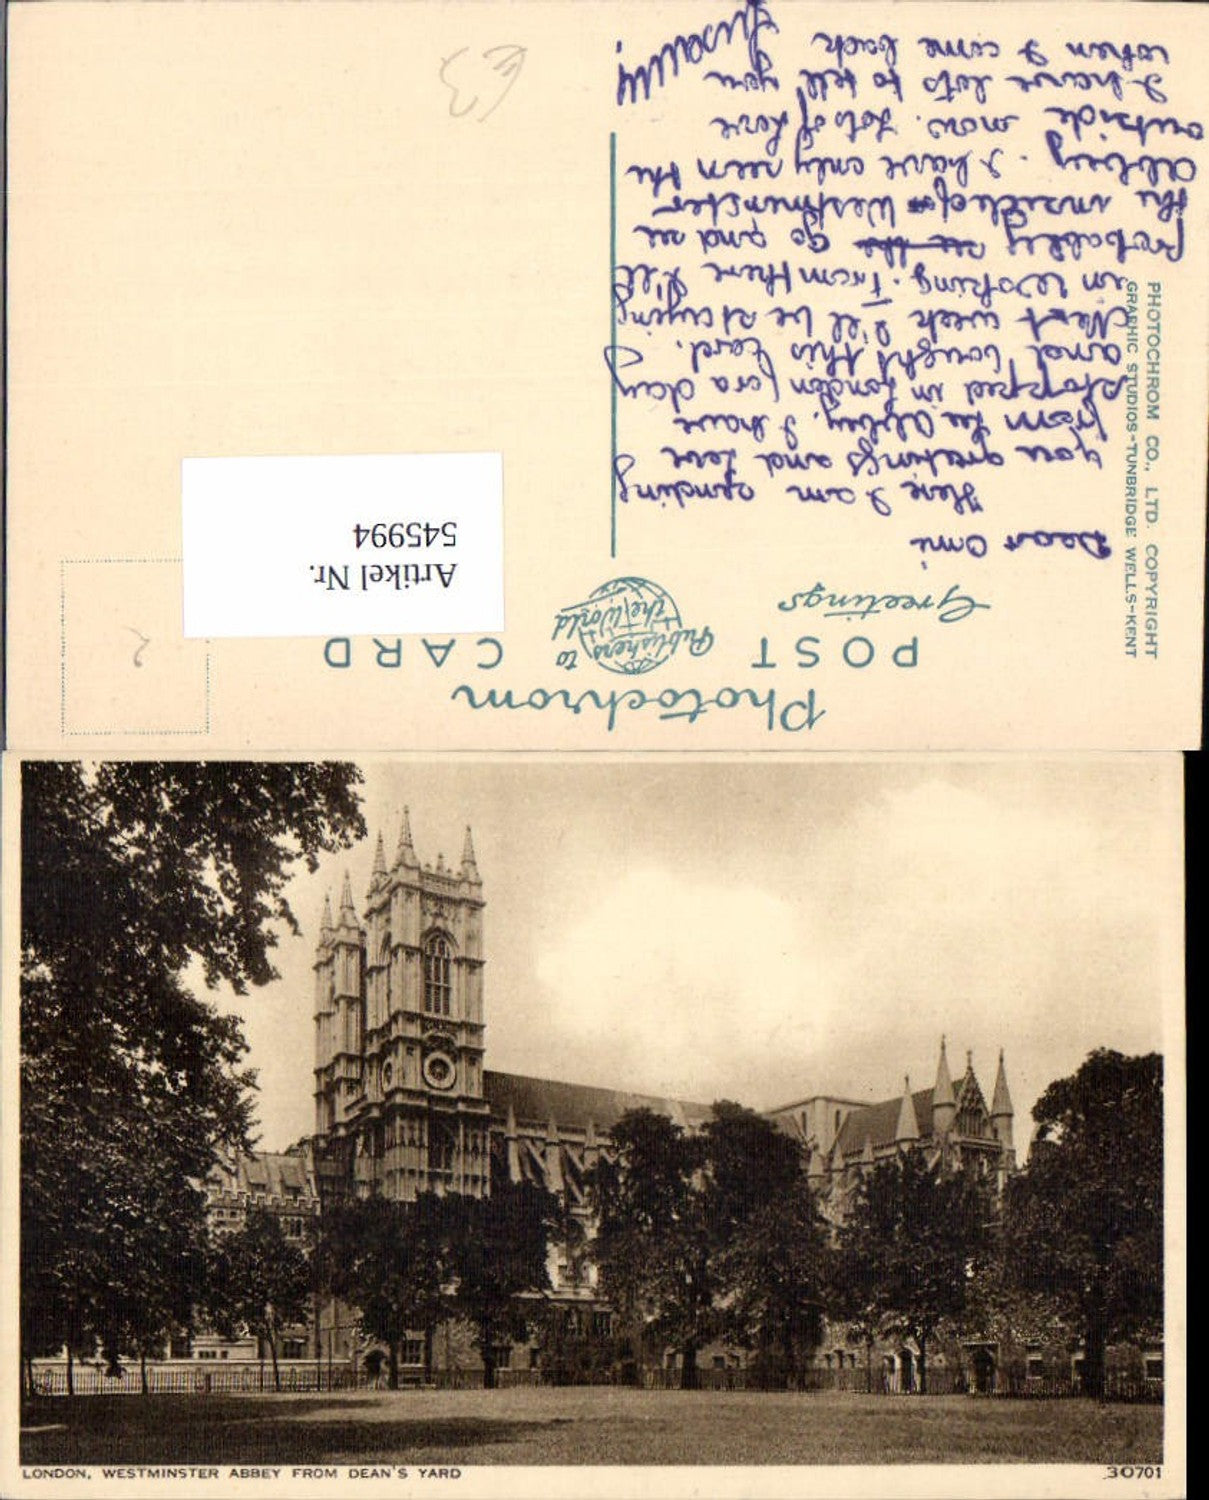 Photochrom
POST CARD
Publishers to
the World
Greetings
PHOTOCHROM CO., LTD. COPYRIGHT
GRAPHIC STUDIOS-TUNBRIDGE WELLS-KENT
Artikel Nr.
545994
Dear Omi
Here I am sending
you greetings and love
from the Abbey. I have
stopped in London for a day
and bought this card.
Next week I'll be staying
in Woking. From there I'll
probably see the go and see
the inside of Westminster
Abbey. I have only seen the
outside now. Lots of love
I have lots to tell you
when I come back
2
LONDON, WESTMINSTER ABBEY FROM DEAN'S YARD
30701